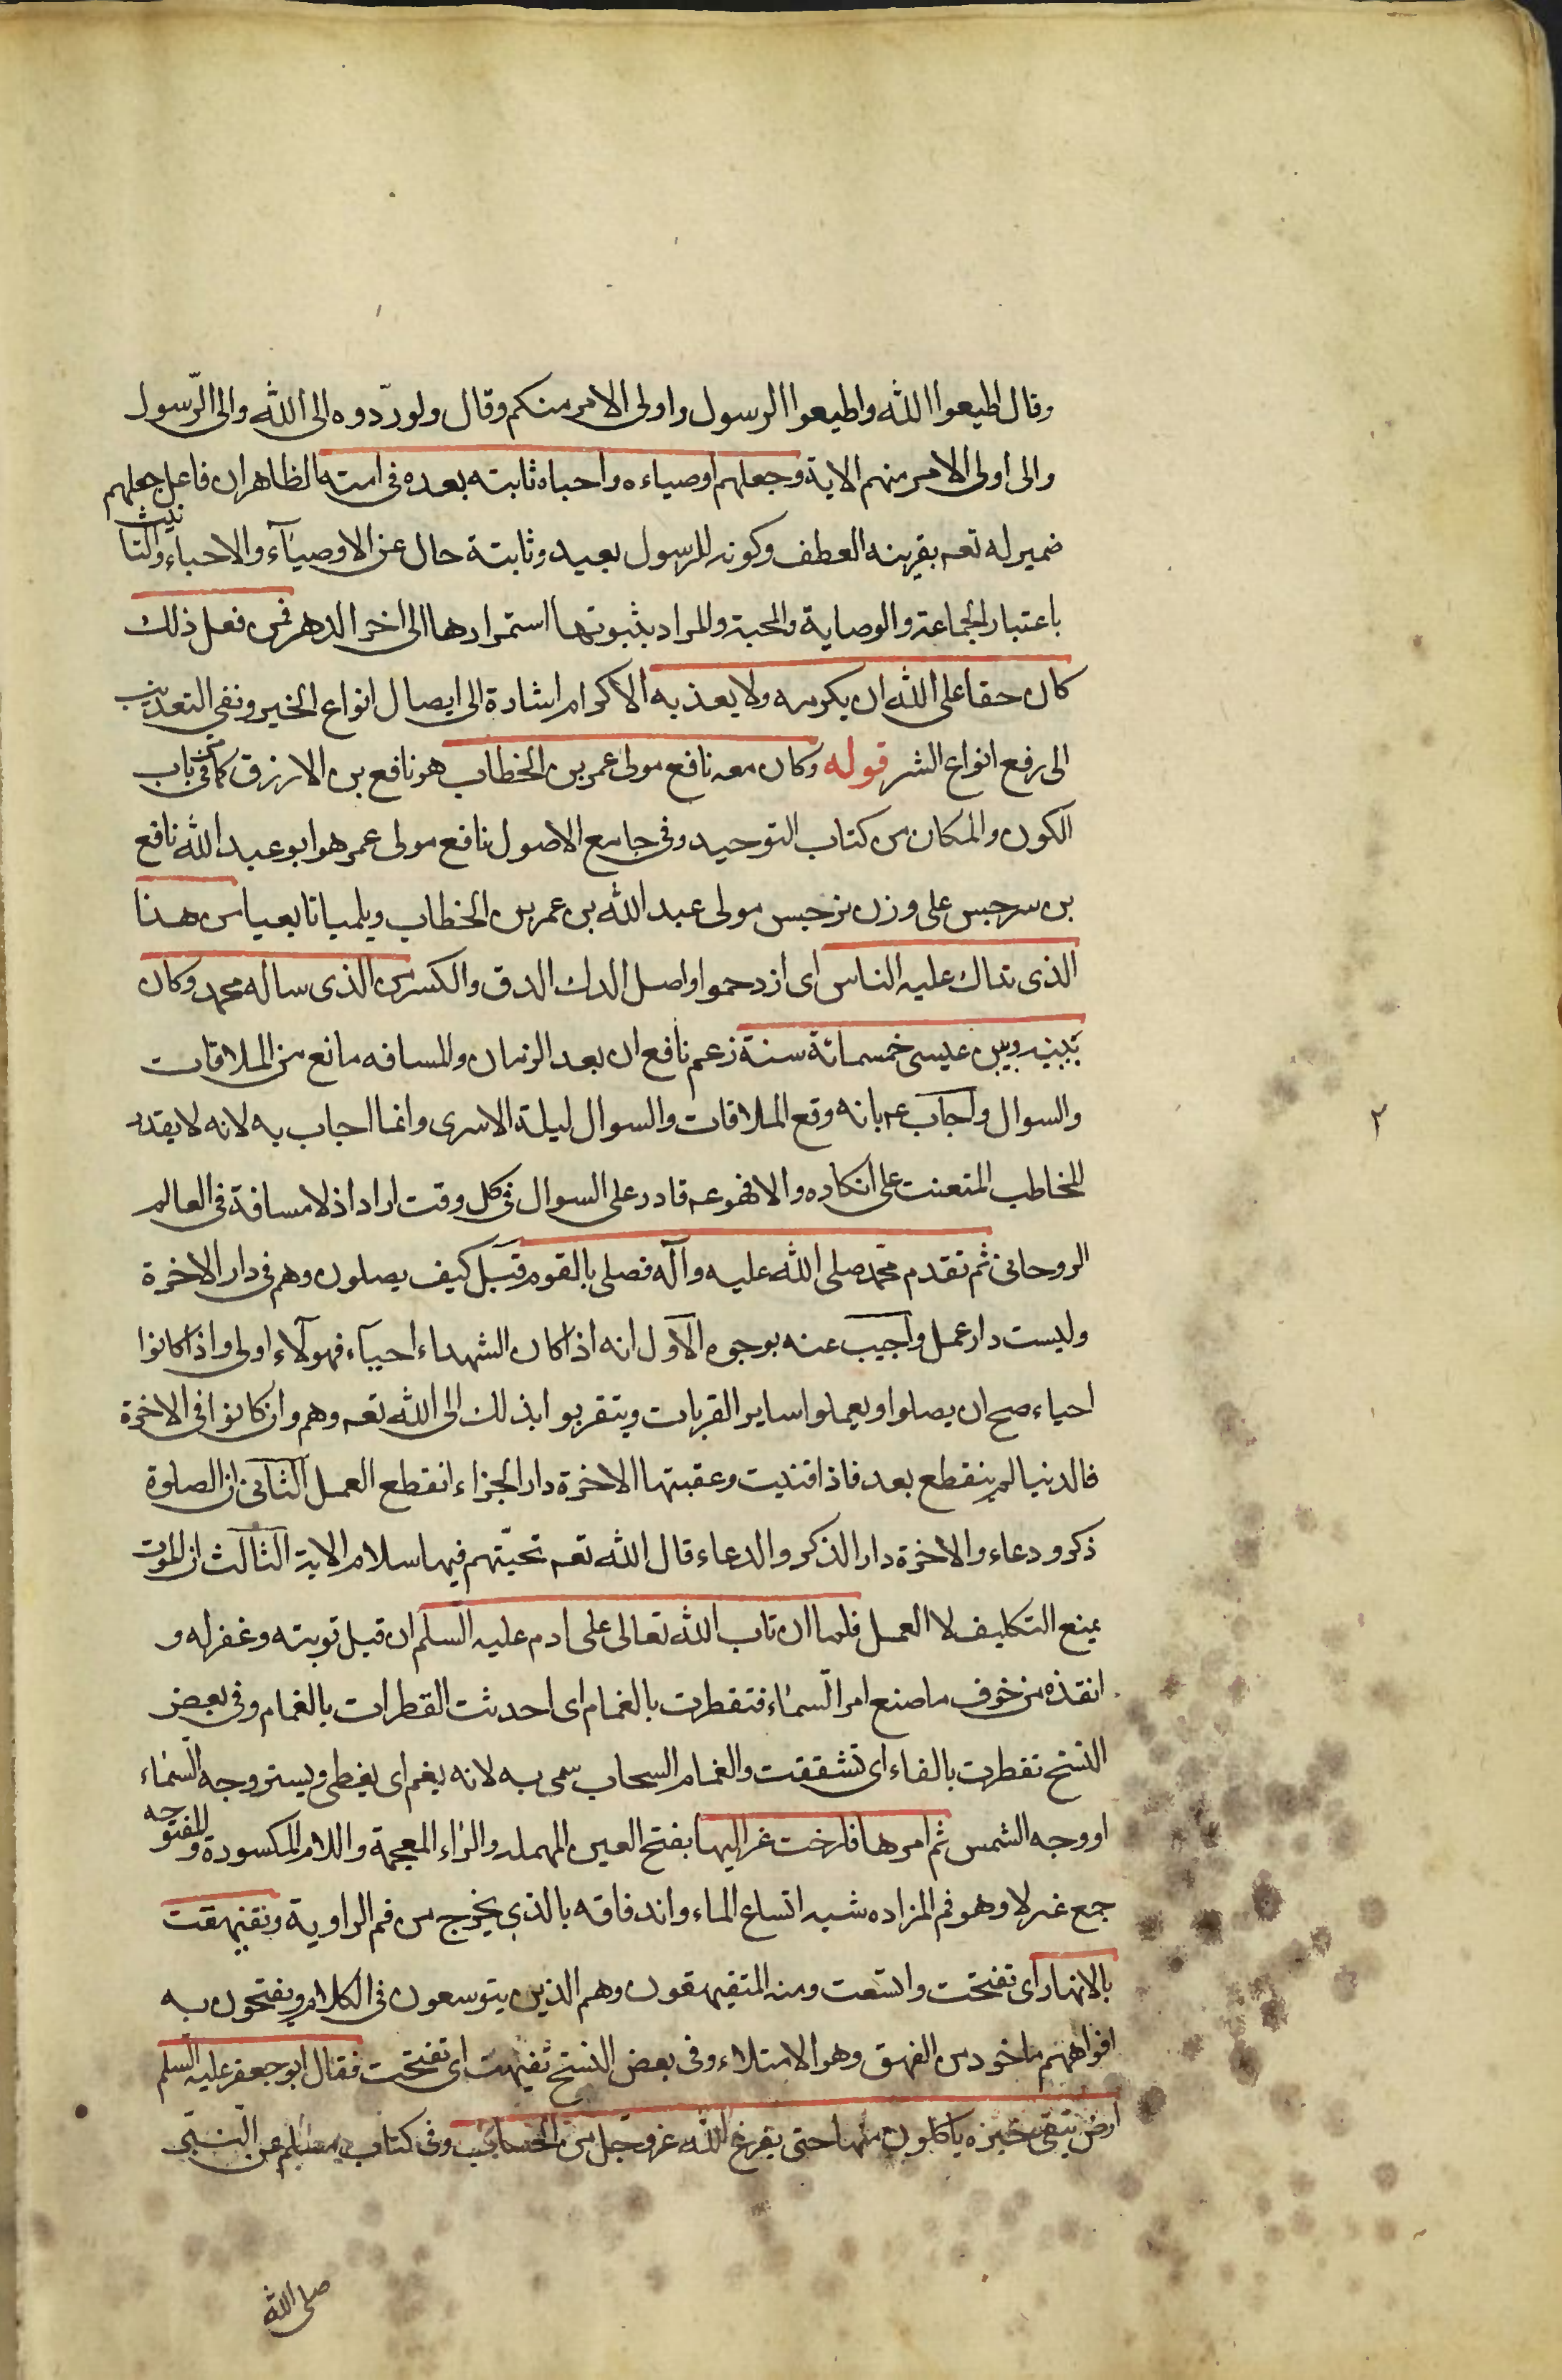 وقال اطيعوا الله واطيعوا الرسول واولى الامر منكم وقال ولو ردّوه الى الله والى الرّسول
والى اولى الامر منهم الاية وجعلهم اوصياءه واحباه ثابته بعده فى امته الظاهر ان فاعل جعلهم
ضمير له تعه بقرينه العطف وكونه للرسول بعيد وثابتة حال عن الاوصياء والاحباء والتانيث
باعتبار الجماعة والوصاية والمحبة والمراد بثبوتها استمرارها الى اخر الدهر فمن فعل ذلك
كان حقا على الله ان يكرمه ولا يعذبه الاكرام اشارة الى ايصال انواع الخير ونفي التعذيب
الى رفع انواع الشر قوله وكان معه نافع مولى عمر بن الخطاب هو نافع بن الازرق كما فى باب
الكون والمكان من كتاب التوحيد وفى جامع الاصول نافع مولى عمر هو ابو عبد الله نافع
بن سرجس على وزن نرجس مولى عبد الله بن عمر بن الخطاب ويلميا تابعيا من هذا
الذى تداك عليه الناس اى ازدحموا واصل الدك الدق والكسر من الذى ساله محمد وكان
بينه وبين عيسى خمسمائة سنة زعم نافع ان بعد الزمان والمسافه مانع من الملاقات
والسوال واجاب عه بانه وقع الملاقات والسوال ليلة الاسرى وانما اجاب به لانه لا يقدر
المخاطب المتعنت على انكاره والا فهو عه قادر على السوال فى كل وقت اراد اذ لا مسافة فى العالم
٢
الروحانى ثم تقدم محمد صلى الله عليه وآله فصلى بالقوم قيل كيف يصلون وهم فى دار الاخرة
وليست دار عمل واجيب عنه بوجوه الاول انه اذا كان الشهداء احياء فهولاء اولى واذا كانوا
احياء صح ان يصلوا ويعملوا ساير القربات ويتقربوا بذلك الى الله تعه وهم وان كانوا فى الاخرة
فالدنيا لم ينقطع بعد فاذا فنيت وعقبتها الاخرة دار الجزاء انقطع العمل الثانى ان الصلوة
ذكر ودعاء والاخرة دار الذكر والدعاء قال الله تعه تحيّتهم فيها سلام الاية الثالث ان الموت
يمنع التكليف لا العمل فلما ان تاب الله تعالى على ادم عليه السلم ان قبل توبته وغفر له و
انقذه من خوف ما صنع امر السماء فتقطرت بالغمام اى احدثت القطرات بالغمام وفى بعض
النسخ تفطرت بالفاء اى تشققت والغمام السحاب سمى به لانه يغم اى يغطى ويستر وجه السماء
او وجه الشمس ثم امرها فارخت عزاليها بفتح العين المهمله والزاء المعجمة واللام المكسورة والمفتوحه
جمع عزلا وهو فم المزاده شبه اتساع الماء واندفاقه بالذي يخرج من فم الراوية وتفيهقت
بالانهار اى تفتحت واتسعت ومنه المتفيهقون وهم الذين يتوسعون فى الكلام ويفتحون به
افواههم ماخوذ من الفهق وهو الامتلاء وفى بعض النسخ تفيهت اى تفتحت فقال ابو جعفر عليه السلم
ارض تبقى خبزه ياكلون منها حتى يفرغ الله عز وجل من الحساب وفى كتاب مسلم عن النبى
صلى الله